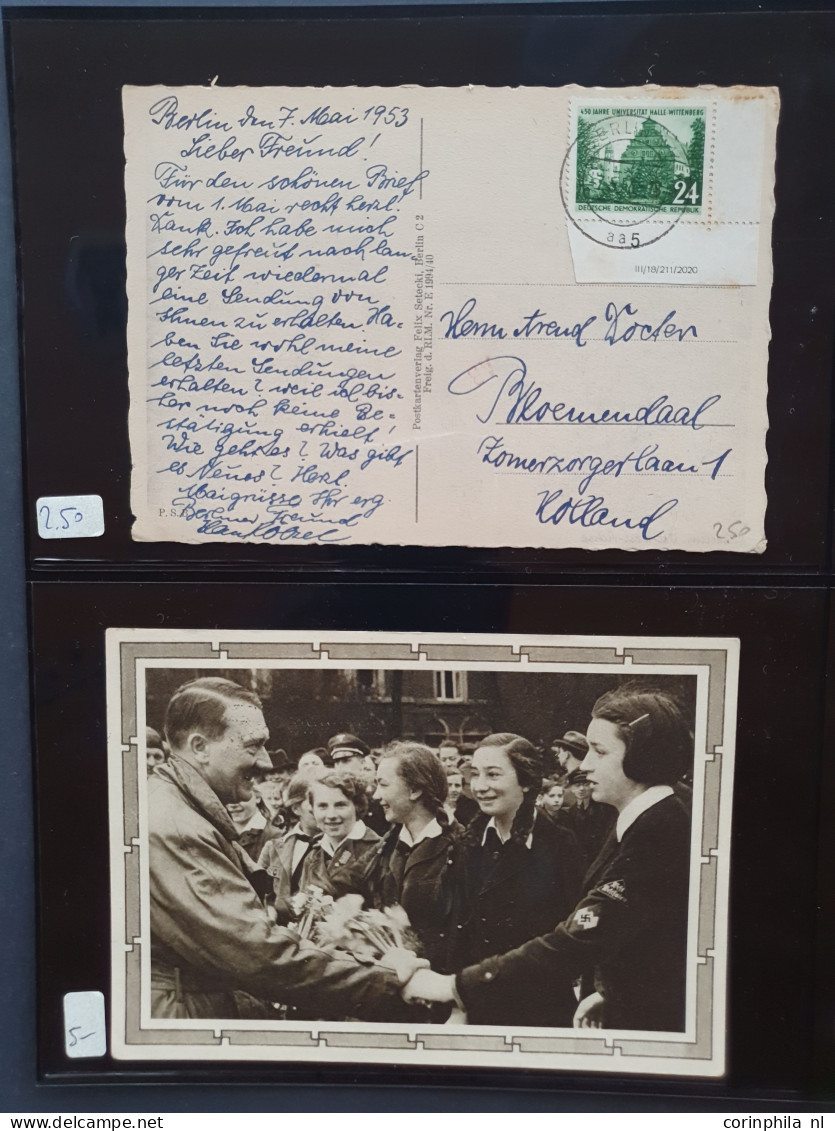 Berlin den 7. Mai 1953
Lieber Freund!
Für den schönen Brief
vom 1. Mai recht herzl.
Dank. Ich habe mich
sehr gefreut nach lan-
ger Zeit wiedermal
eine Sendung von
Ihnen zu erhalten. Ha-
ben Sie wohl meine
letzten Sendungen
erhalten? weil ich bis-
her noch keine Be-
stätigung erhielt!
Wie geht es? Was gibt
es Neues? Herzl.
Maigrüsse Ihr erg.
Berliner Freund
P. S. B.
Postkartenverlag Felix Setecki, Berlin C 2
Freig. d. RLM. Nr. E 1994/40
450 JAHRE UNIVERSITÄT HALLE-WITTENBERG
24
DEUTSCHE DEMOKRATISCHE REPUBLIK
BERLIN
aa5
III/18/211/2020
Herrn Arend Docter
Bloemendaal
Zomerzorgerlaan 1
Holland
2.50
250
5-
corinphila nl